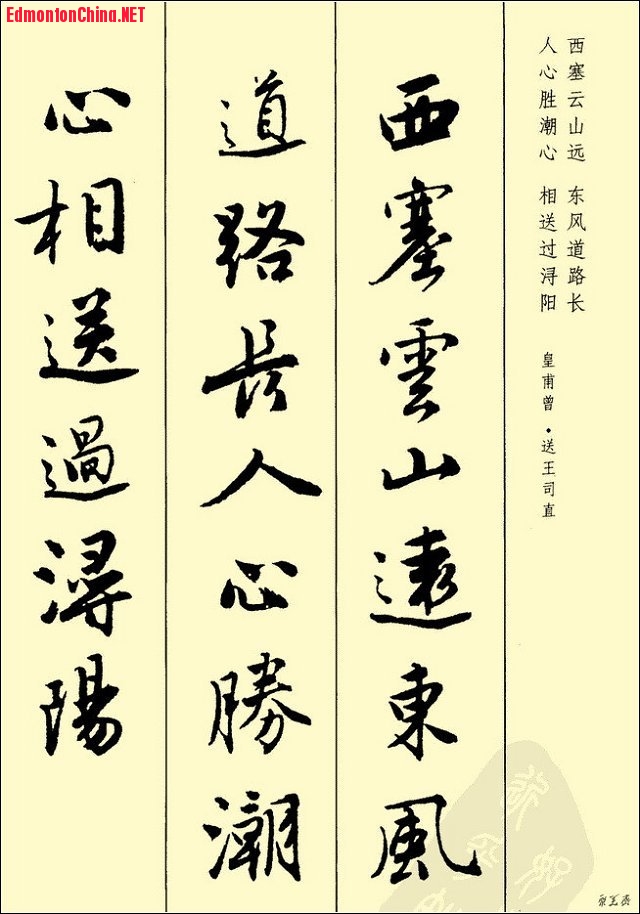 EdmontonChina.NET
西塞云山远 东风道路长
人心胜潮心 相送过浔阳
皇甫曾·送王司直
西塞雲山遠東風
道路長人心勝潮
心相送過潯陽